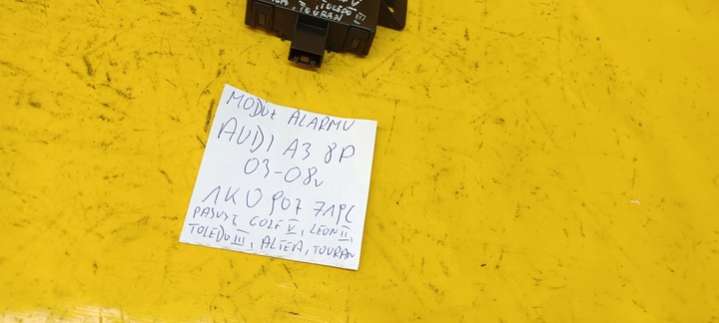 V
, TOLEDO III
, TOURAN
MODUŁ ALARMU
AUDI A3 8P
03-08r
1K0 907 719C
PASUJE GOLF V, LEON II,
TOLEDO III, ALTEA, TOURAN